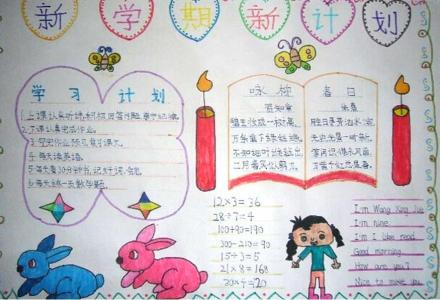 新学期新计划
学习计划
1上课认真听讲,积极回答问题,遵守纪律.
2.下课认真完成作业.
3.写完作业预习课文.
4.每天读英语.
5.每天看30分钟书,记好词、好句.
6.每天练一页数学题.
咏柳
贺知章
碧玉妆成一树高,
万条垂下绿丝绦.
不知细叶谁裁出,
二月春风似剪刀.
春日
朱熹
胜日寻芳泗水滨,
无边光景一时新.
等闲识得东风面,
万紫千红总是春.
12×3=36
28÷7=4
100+90=190
300-210=90
15÷3=5
21×8=168
I'm Wang Xing
I'm nine.
I'm I like read
Good morning.
How are you?
Nice to meet you